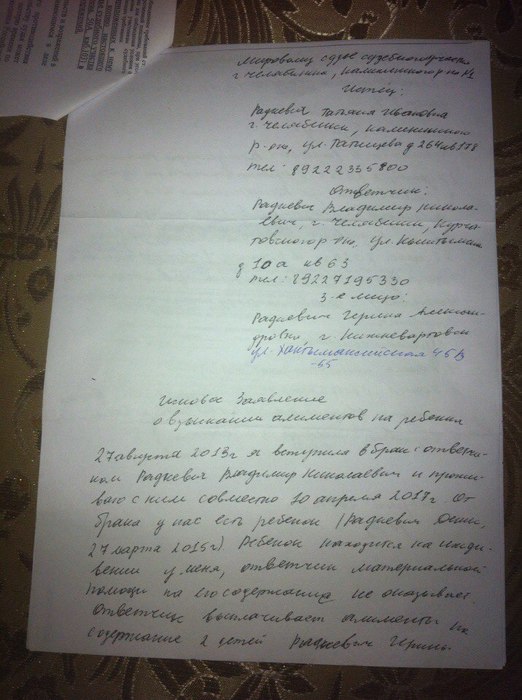 Мировому судье судебного участка
г Челябинска, Калининского р-на №1
Истец:
Радкевич Татьяна Ивановна
г. Челябинск, Калининский
р-он, ул Татищева д 264 кв 178
тел: 89222355800
Ответчик:
Радкевич Владимир Никола-
евич, г. Челябинск, Курча-
товского р-на, ул
д 10а кв 63
тел: 89227195330
3-е лицо:
Радкевич Герина
г. Нижневартовск
ул. Хантымансийская 45
-55
Исковое Заявление
о взыскании алиментов на ребенка
27 августа 2013г я вступила в брак с ответчи-
ком Радкевич Владимир Николаевич и прожи-
ваю с ним совместно 10 апреля 2017г От
брака у нас есть ребенок (Радкевич
27 марта 2015г) Ребенок находится на иждив-
вении у меня, ответчик материальной
помощи на его содержание не оказывает.
Ответчик выплачивает алименты на
содержание 2 детей Радкевич Герины